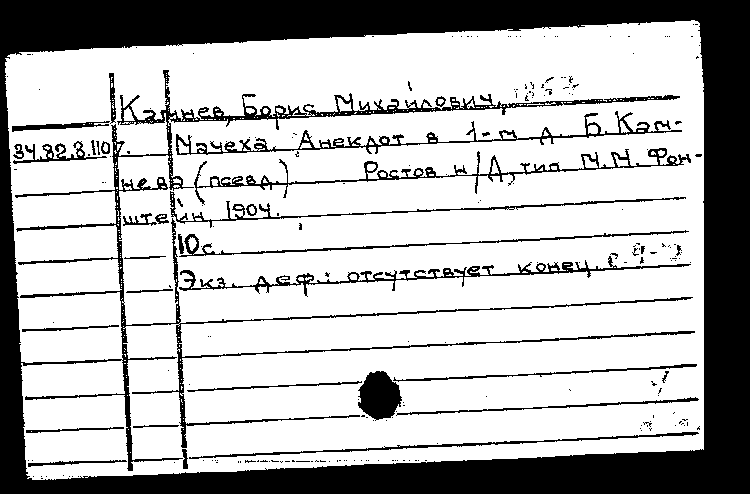 Камнев, Борис Михайлович,
34.82.8.110 7. Мачеха. Анекдот в 1-м д. Б. Кам-
нева (псевд.) Ростов н/Д, тип. М.М. Фон-
штейн, 1904.
10 с.
Экз. деф.: отсутствует конец с.